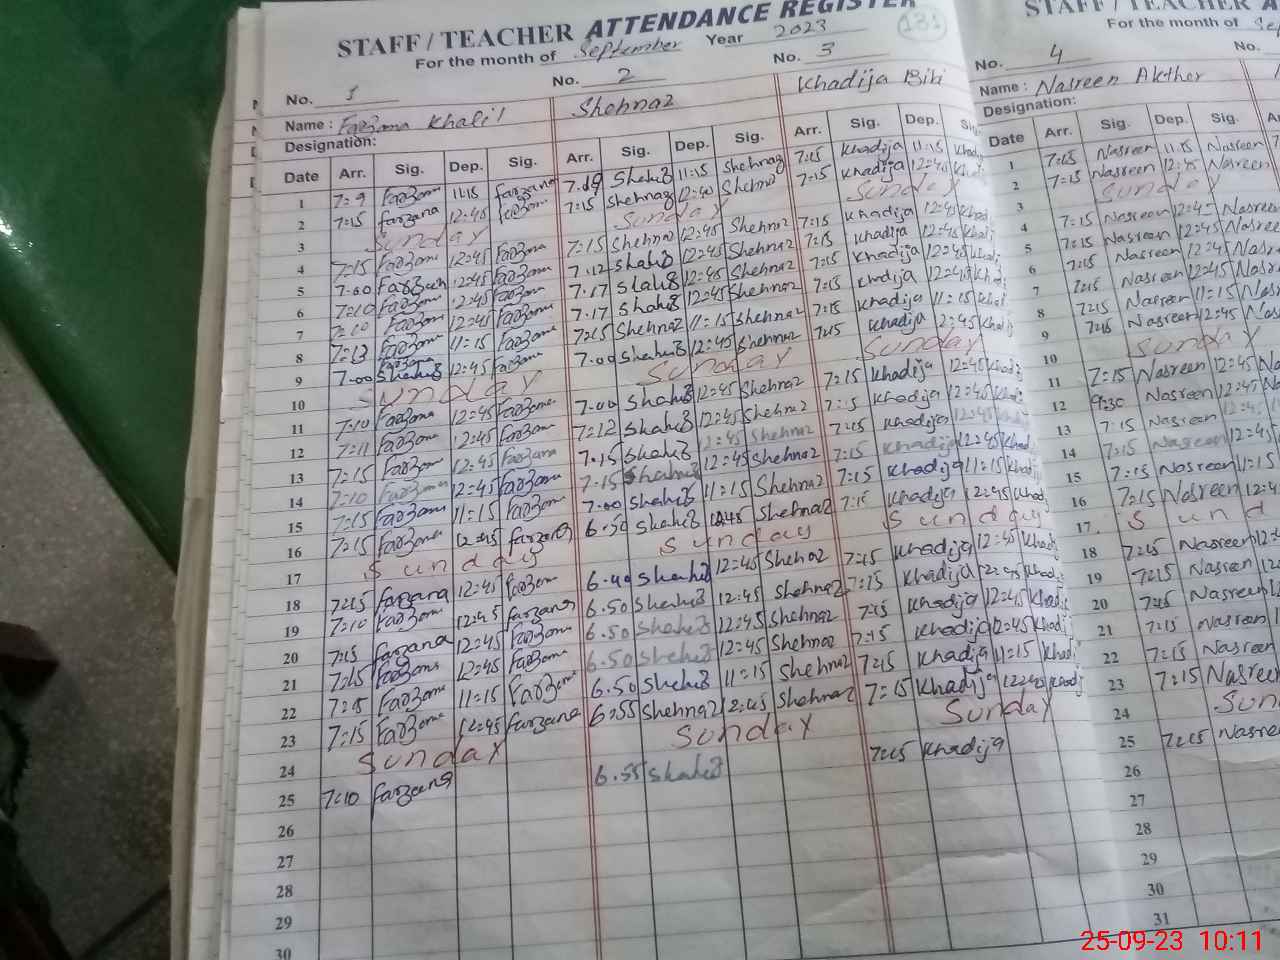 STAFF / TEACHER ATTENDANCE REGISTER 131
For the month of September Year 2023
No. 1 No. 2 No. 3
Name : Farzana Khalil Shehnaz Khadija Bibi
Designation:
Date Arr. Sig. Dep. Sig. Arr. Sig. Dep. Sig. Arr. Sig. Dep. Sig.
1 7=9 Farzana 11:15 farzana Shehnaz 11:15 Shehnaz 7:15 Khadija 11:15 Khadija
2 7=15 farzana 12=45 farzana 7:15 Shehnaz 12=45 Shehnaz 7:15 Khadija 12=45
3 Sunday Sunday Sunday
4 7=15 Farzana 12=45 Farzana 7=15 Shehnaz 12=45 Shehnaz 7=15 Khadija 12=45
5 7.00 Farzana 12=45 Farzana 7.12 12=45 Shehnaz 7:15 Khadija 12=45
6 7=10 Farzana 12=45 Farzana 7.17 12=45 Shehnaz 7:15 Khadija 12=45
7 7=10 Farzana 12=45 Farzana 7.17 12=45 Shehnaz 7:15 Khadija 12=45
8 7=13 Farzana 11=15 Farzana 7:15 Shehnaz 11=15 Shehnaz 7:15 Khadija 11=15
9 7.00 12=45 Farzana 7.00 12=45 Shehnaz 7:15 Khadija 12=45
10 Sunday Sunday Sunday
11 7=10 Farzana 12=45 Farzana 7.00 12=45 Shehnaz 7=15 Khadija 12=45
12 7=11 Farzana 12=45 Farzana 7=12 12=45 Shehnaz 7=15 Khadija 12=45
13 7=15 Farzana 12=45 Farzana 7.15 12=45 Shehnaz 7=15 Khadija 12=45
14 7=10 Farzana 12=45 Farzana 7.15 12=45 Shehnaz 7:15 Khadija 12=45
15 7=15 Farzana 11=15 Farzana 7.00 11=15 Shehnaz 7=15 Khadija 11=15
16 7=15 Farzana 12=45 farzana 6.50 12=45 Shehnaz 7=15 Khadija 12=45
17 Sunday Sunday Sunday
18 7=15 farzana 12=45 farzana 6.40 12=45 Shehnaz 7=15 Khadija 12=45
19 7=10 Farzana 12=45 farzana 6.50 12=45 Shehnaz 7=15 Khadija 12=45
20 7=15 farzana 12=45 Farzana 6.50 12=45 Shehnaz 7=15 Khadija 12=45
21 7=15 Farzana 12=45 Farzana 6.50 12=45 Shehnaz 7=15 Khadija 12=45
22 7=15 Farzana 11=15 Farzana 6.50 11=15 Shehnaz 7=15 Khadija 11=15
23 7=15 Farzana 12=45 farzana 6=55 Shehnaz 12=45 Shehnaz 7=15 Khadija 12=45
24 Sunday Sunday Sunday
25 7=10 farzana 6.55 7=15 Khadija
26
27
28
29
30
STAFF / TEACHER
For the month of
No. 4 No.
Name : Nasreen Akther
Designation:
Date Arr. Sig. Dep. Sig.
1 7=15 Nasreen 11:15 Nasreen
2 7=15 Nasreen 12=45 Nasreen
3 Sunday
4 7=15 Nasreen 12=45 Nasreen
5 7=15 Nasreen 12=45 Nasreen
6 7=15 Nasreen 12=45
7 7=15 Nasreen 12=45
8 7=15 Nasreen 11=15
9 7=15 Nasreen 12=45
10 Sunday
11 7=15 Nasreen 12=45
12 9:30 Nasreen 12=45
13 7=15 Nasreen 12=45
14 7=15 Nasreen 12=45
15 7=15 Nasreen 11=15
16 7=15 Nasreen
17
18 7=15 Nasreen
19 7=15 Nasreen
20 7=15 Nasreen
21 7=15 Nasreen
22 7=15 Nasreen
23 7=15 Nasreen
24
25 7=15
26
27
28
29
30
31
25-09-23 10:11